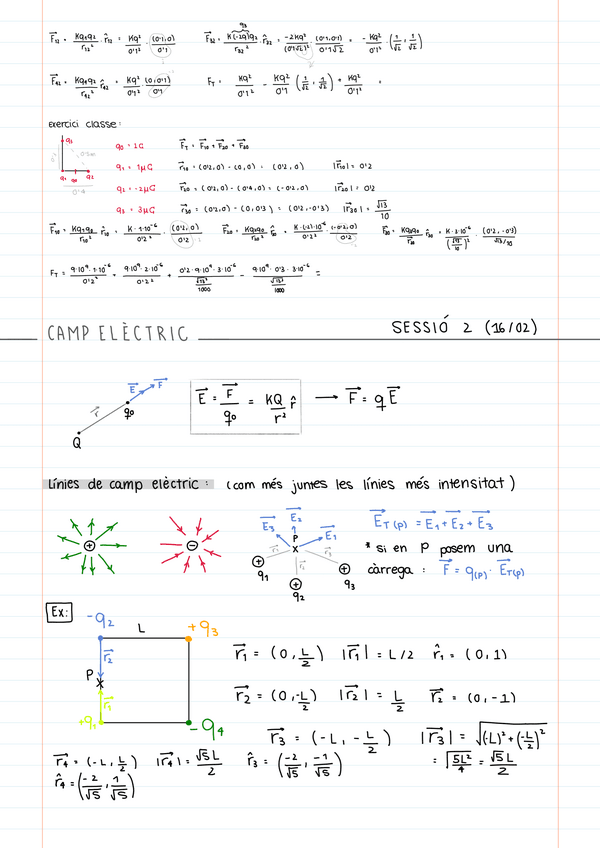 q3
F12 = Kq1q2/r12² · r̂12 = Kq²/0'1² · (0'1,0)/0'1 F32 = K(-2q)q2/r32² · r̂32 = -2Kq²/(0'1√2)² · (0'1,0'1)/0'1√2 = - Kq²/0'1² · (1/√2, 1/√2)
F42 = Kq4q2/r42² r̂42 = Kq²/0'1² · (0,0'1)/0'1 FT = Kq²/0'1² - Kq²/0'1 (1/√2, 1/√2) + Kq²/0'1² =
exercici classe:
q3
q1 q0 q2
0'4
q0 = 1C FT = F10 + F20 + F30
q1 = 1μC r10 = (0'2,0) - (0,0) = (0'2,0) |r10| = 0'2
q2 = -2μC r20 = (0'2,0) - (0'4,0) = (-0'2,0) |r20| = 0'2
q3 = 3μC r30 = (0'2,0) - (0,0'3) = (0'2,-0'3) |r30| = √13/10
F10 = Kq1q0/r10² · r̂10 = K·1·10⁻⁶/0'2² · (0'2,0)/0'2 F20 = Kq2q0/r20² · r̂20 = K·(-2)·10⁻⁶/0'2² · (-0'2,0)/0'2 F30 = Kq3q0/r30² · r̂30 = K·3·10⁻⁶/(√13/10)² · (0'2,-0'3)/√13/10
FT = 9·10⁹·1·10⁻⁶/0'2² + 9·10⁹·2·10⁻⁶/0'2² + 0'2·9·10⁹·3·10⁻⁶/√13³/1000 - 9·10⁹·0'3·3·10⁻⁶/√13³/1000 =
CAMP ELÈCTRIC SESSIÓ 2 (16/02)
E F
r q0
Q
E = F/q0 = KQ/r² r̂ → F = qE
Línies de camp elèctric: (com més juntes les línies més intensitat)
+ -
E3 E2 E1
P
x
r1 r2 r3
q1 q2 q3
ET(p) = E1 + E2 + E3
* si en P posem una
càrrega: F = q(p) · ET(p)
Ex:
-q2 L +q3
r2
P
x
r1
+q1 -q4
r1 = (0, L/2) |r1| = L/2 r̂1 = (0,1)
r2 = (0,-L/2) |r2| = L/2 r2 = (0,-1)
r3 = (-L,-L/2) |r3| = √(-L)²+(-L/2)²
r4 = (-L, L/2) |r4| = √5L/2 r̂3 = (-2/√5, -1/√5) = √5L²/4 = √5L/2
r̂4 = (-2/√5, 1/√5)